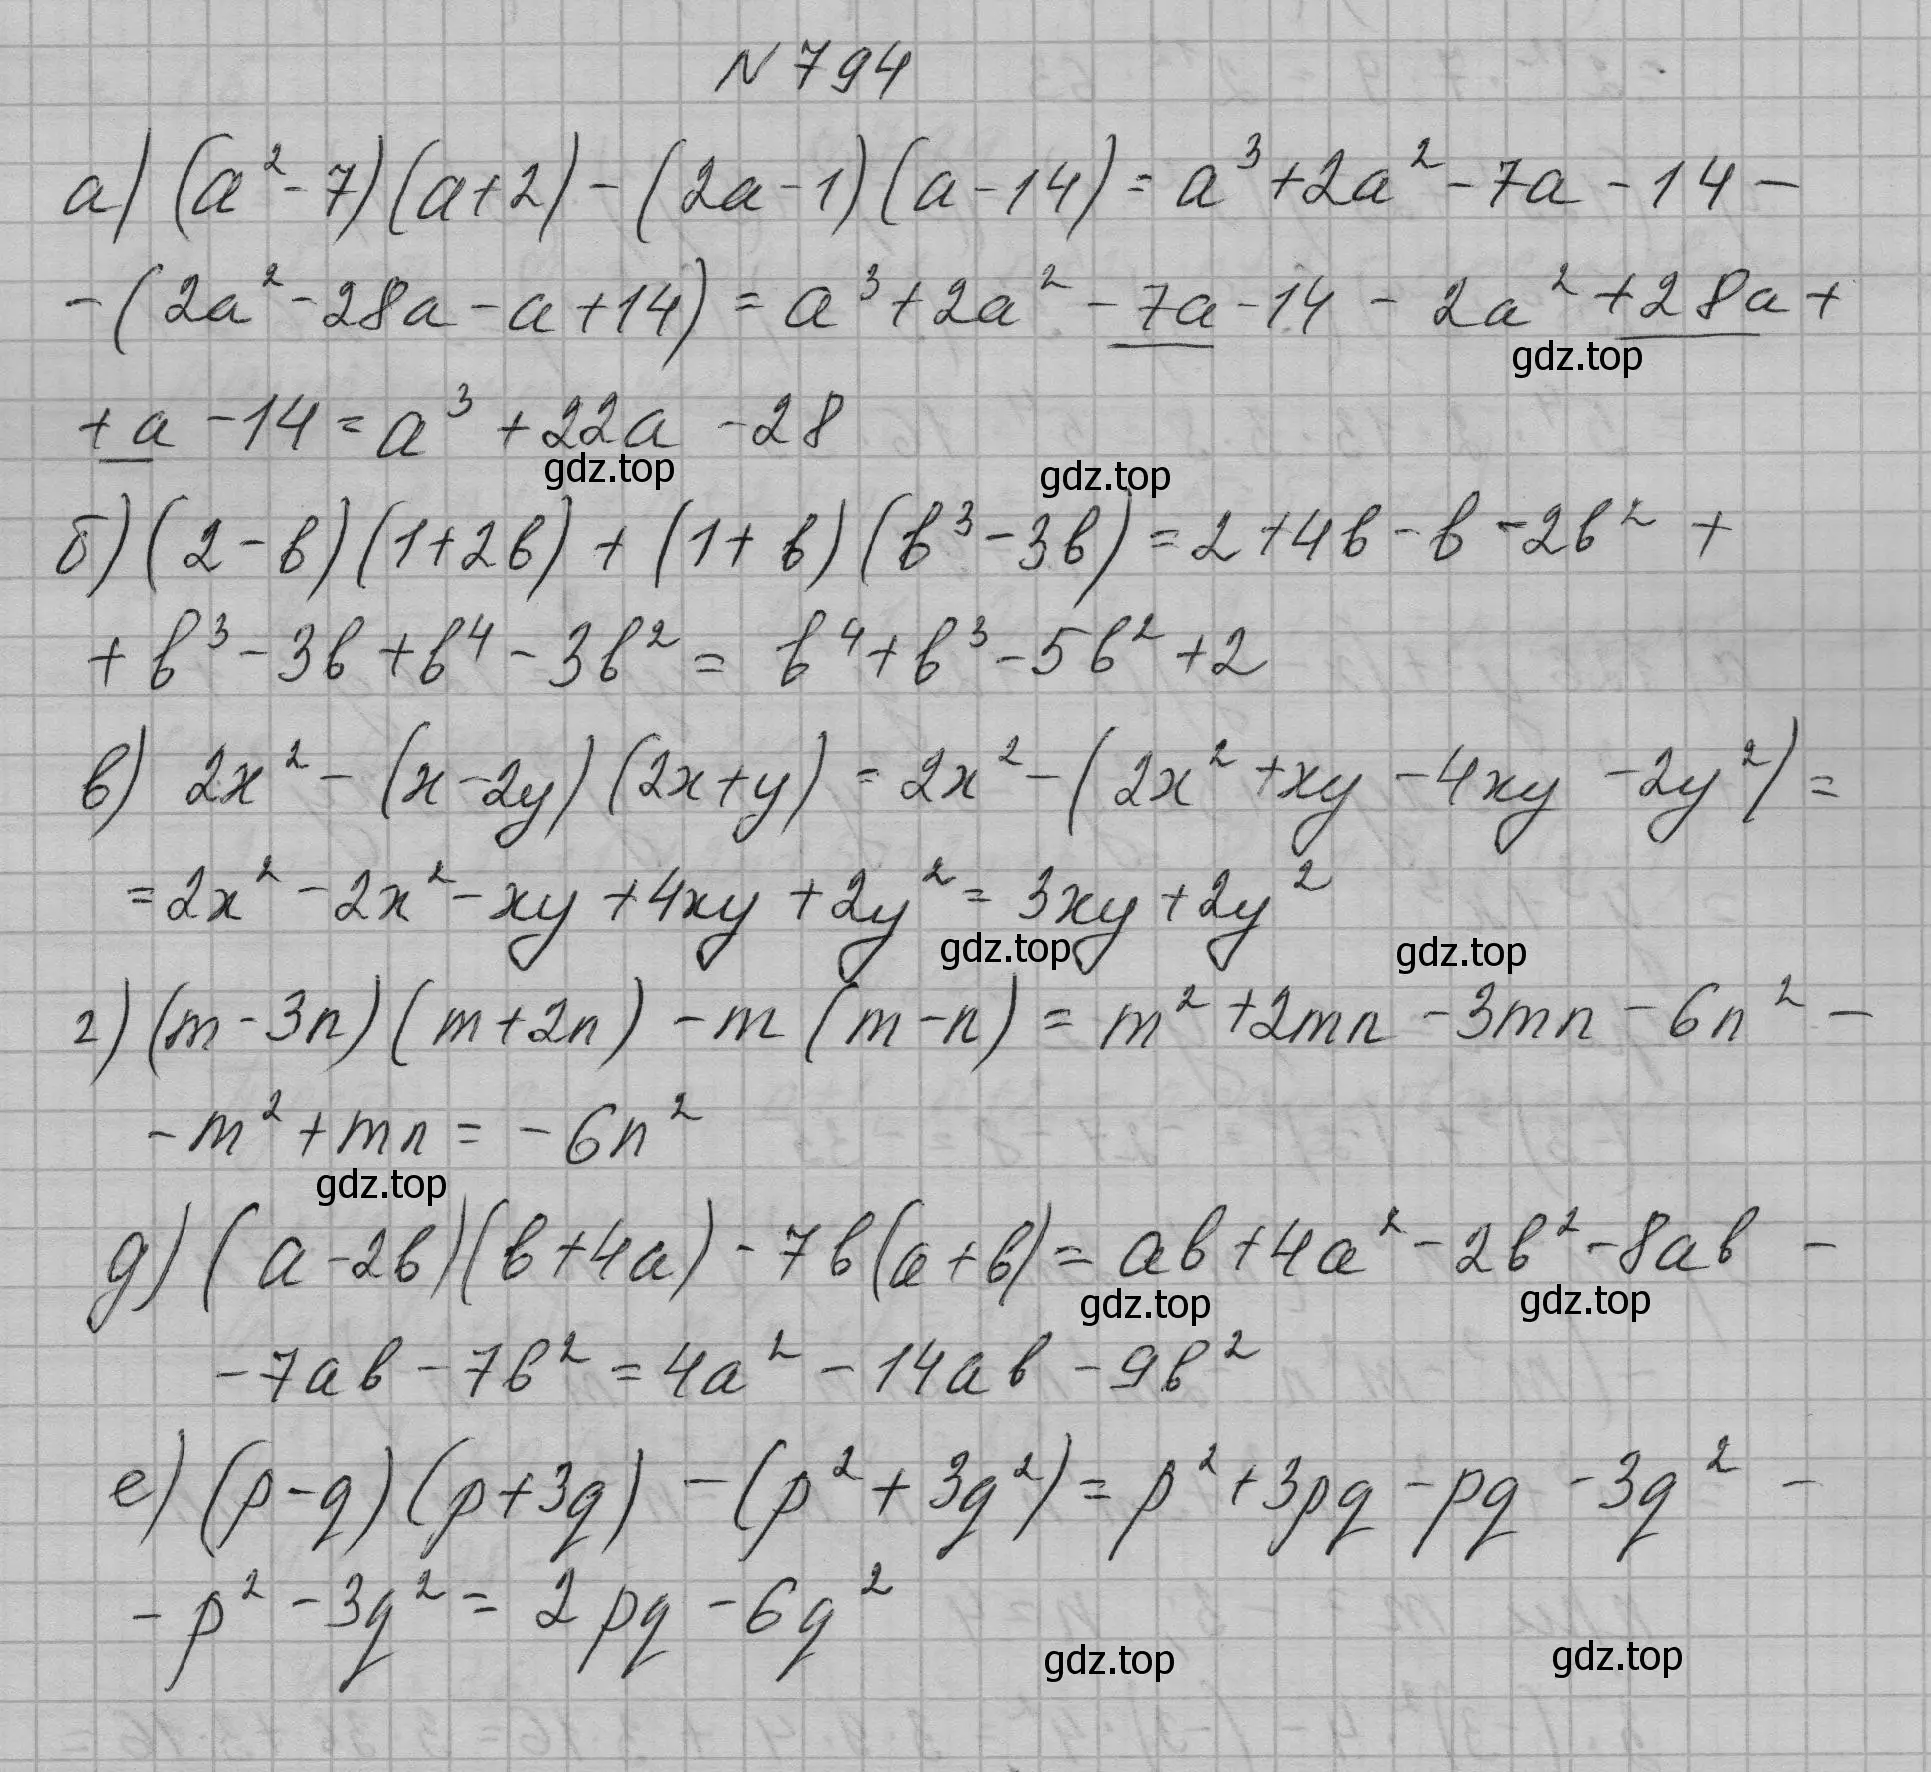 N 794
а) (a² - 7)(a + 2) - (2a - 1)(a - 14) = a³ + 2a² - 7a - 14 -
- (2a² - 28a - a + 14) = a³ + 2a² - 7a - 14 - 2a² + 28a +
gdz.top
+ a - 14 = a³ + 22a - 28
gdz.top gdz.top
б) (2 - b)(1 + 2b) + (1 + b)(b³ - 3b) = 2 + 4b - b - 2b² +
+ b³ - 3b + b⁴ - 3b² = b⁴ + b³ - 5b² + 2
в) 2x² - (x - 2y)(2x + y) = 2x² - (2x² + xy - 4xy - 2y²) =
= 2x² - 2x² - xy + 4xy + 2y² = 3xy + 2y²
gdz.top gdz.top
г) (m - 3n)(m + 2n) - m(m - n) = m² + 2mn - 3mn - 6n² -
- m² + mn = - 6n²
gdz.top
д) (a - 2b)(b + 4a) - 7b(a + b) = ab + 4a² - 2b² - 8ab -
gdz.top gdz.top
- 7ab - 7b² = 4a² - 14ab - 9b²
е) (p - q)(p + 3q) - (p² + 3q²) = p² + 3pq - pq - 3q² -
- p² - 3q² = 2pq - 6q²
gdz.top gdz.top